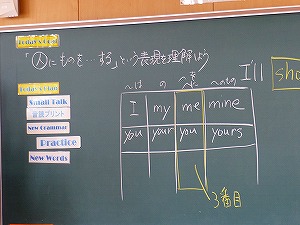 Today's Goal
「人にものを…する」という表現を理解しよう
Today's Plan
Small Talk
音読プリント
New Grammar
Practice
New Words
〜は の 〜を に 〜のもの
I my me mine
you your you yours
3番目
I'll
sho